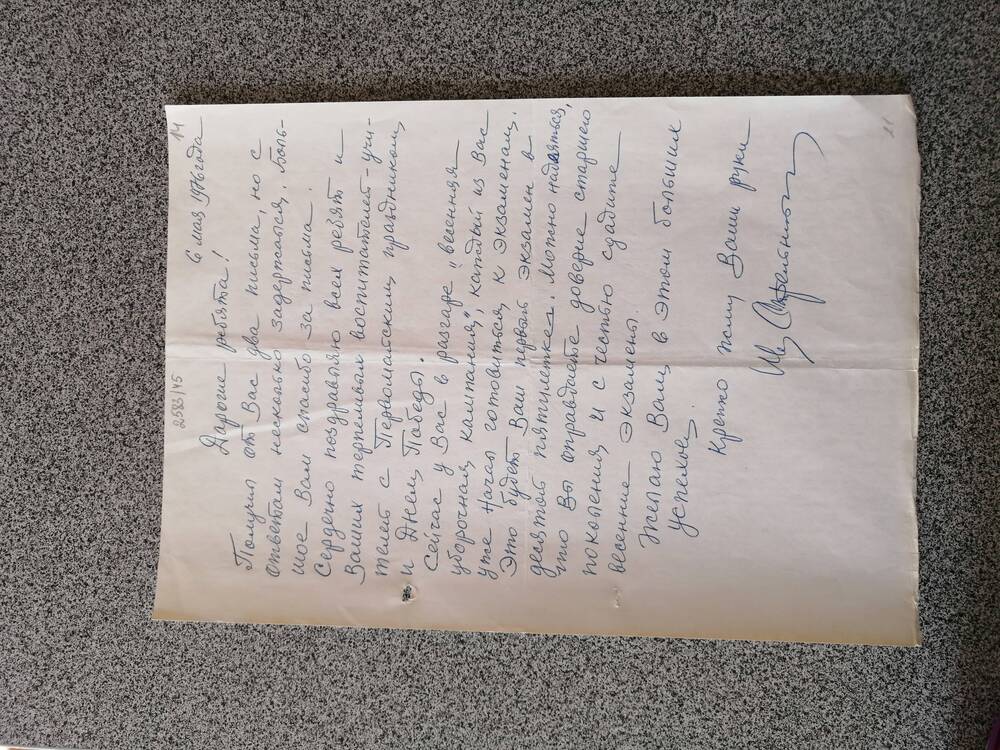 2583/45
14
6 мая 1976 года
Дарогие ребята!
Получил от Вас два письма, но с
ответам несколько задержался. Боль-
шое Вам спасибо за письма.
Сердечно поздравляю всех ребят и
Ваших терпеливых воспитателей-учи-
телей с Первомайским праздником
и Днем Победы.
Сейчас у Вас в разгаре „весенняя
уборочная кампания", каждый из Вас
уже начал готовиться к экзаменам.
Это будет Ваш первый экзамен в
десятой пятилетке. Можно надеяться,
что Вы оправдаете доверие старшего
поколения и с честью сдадите
весенние экзамены.
Желаю Вам в этом больших
успехов.
Крепко жму Ваши руки
21